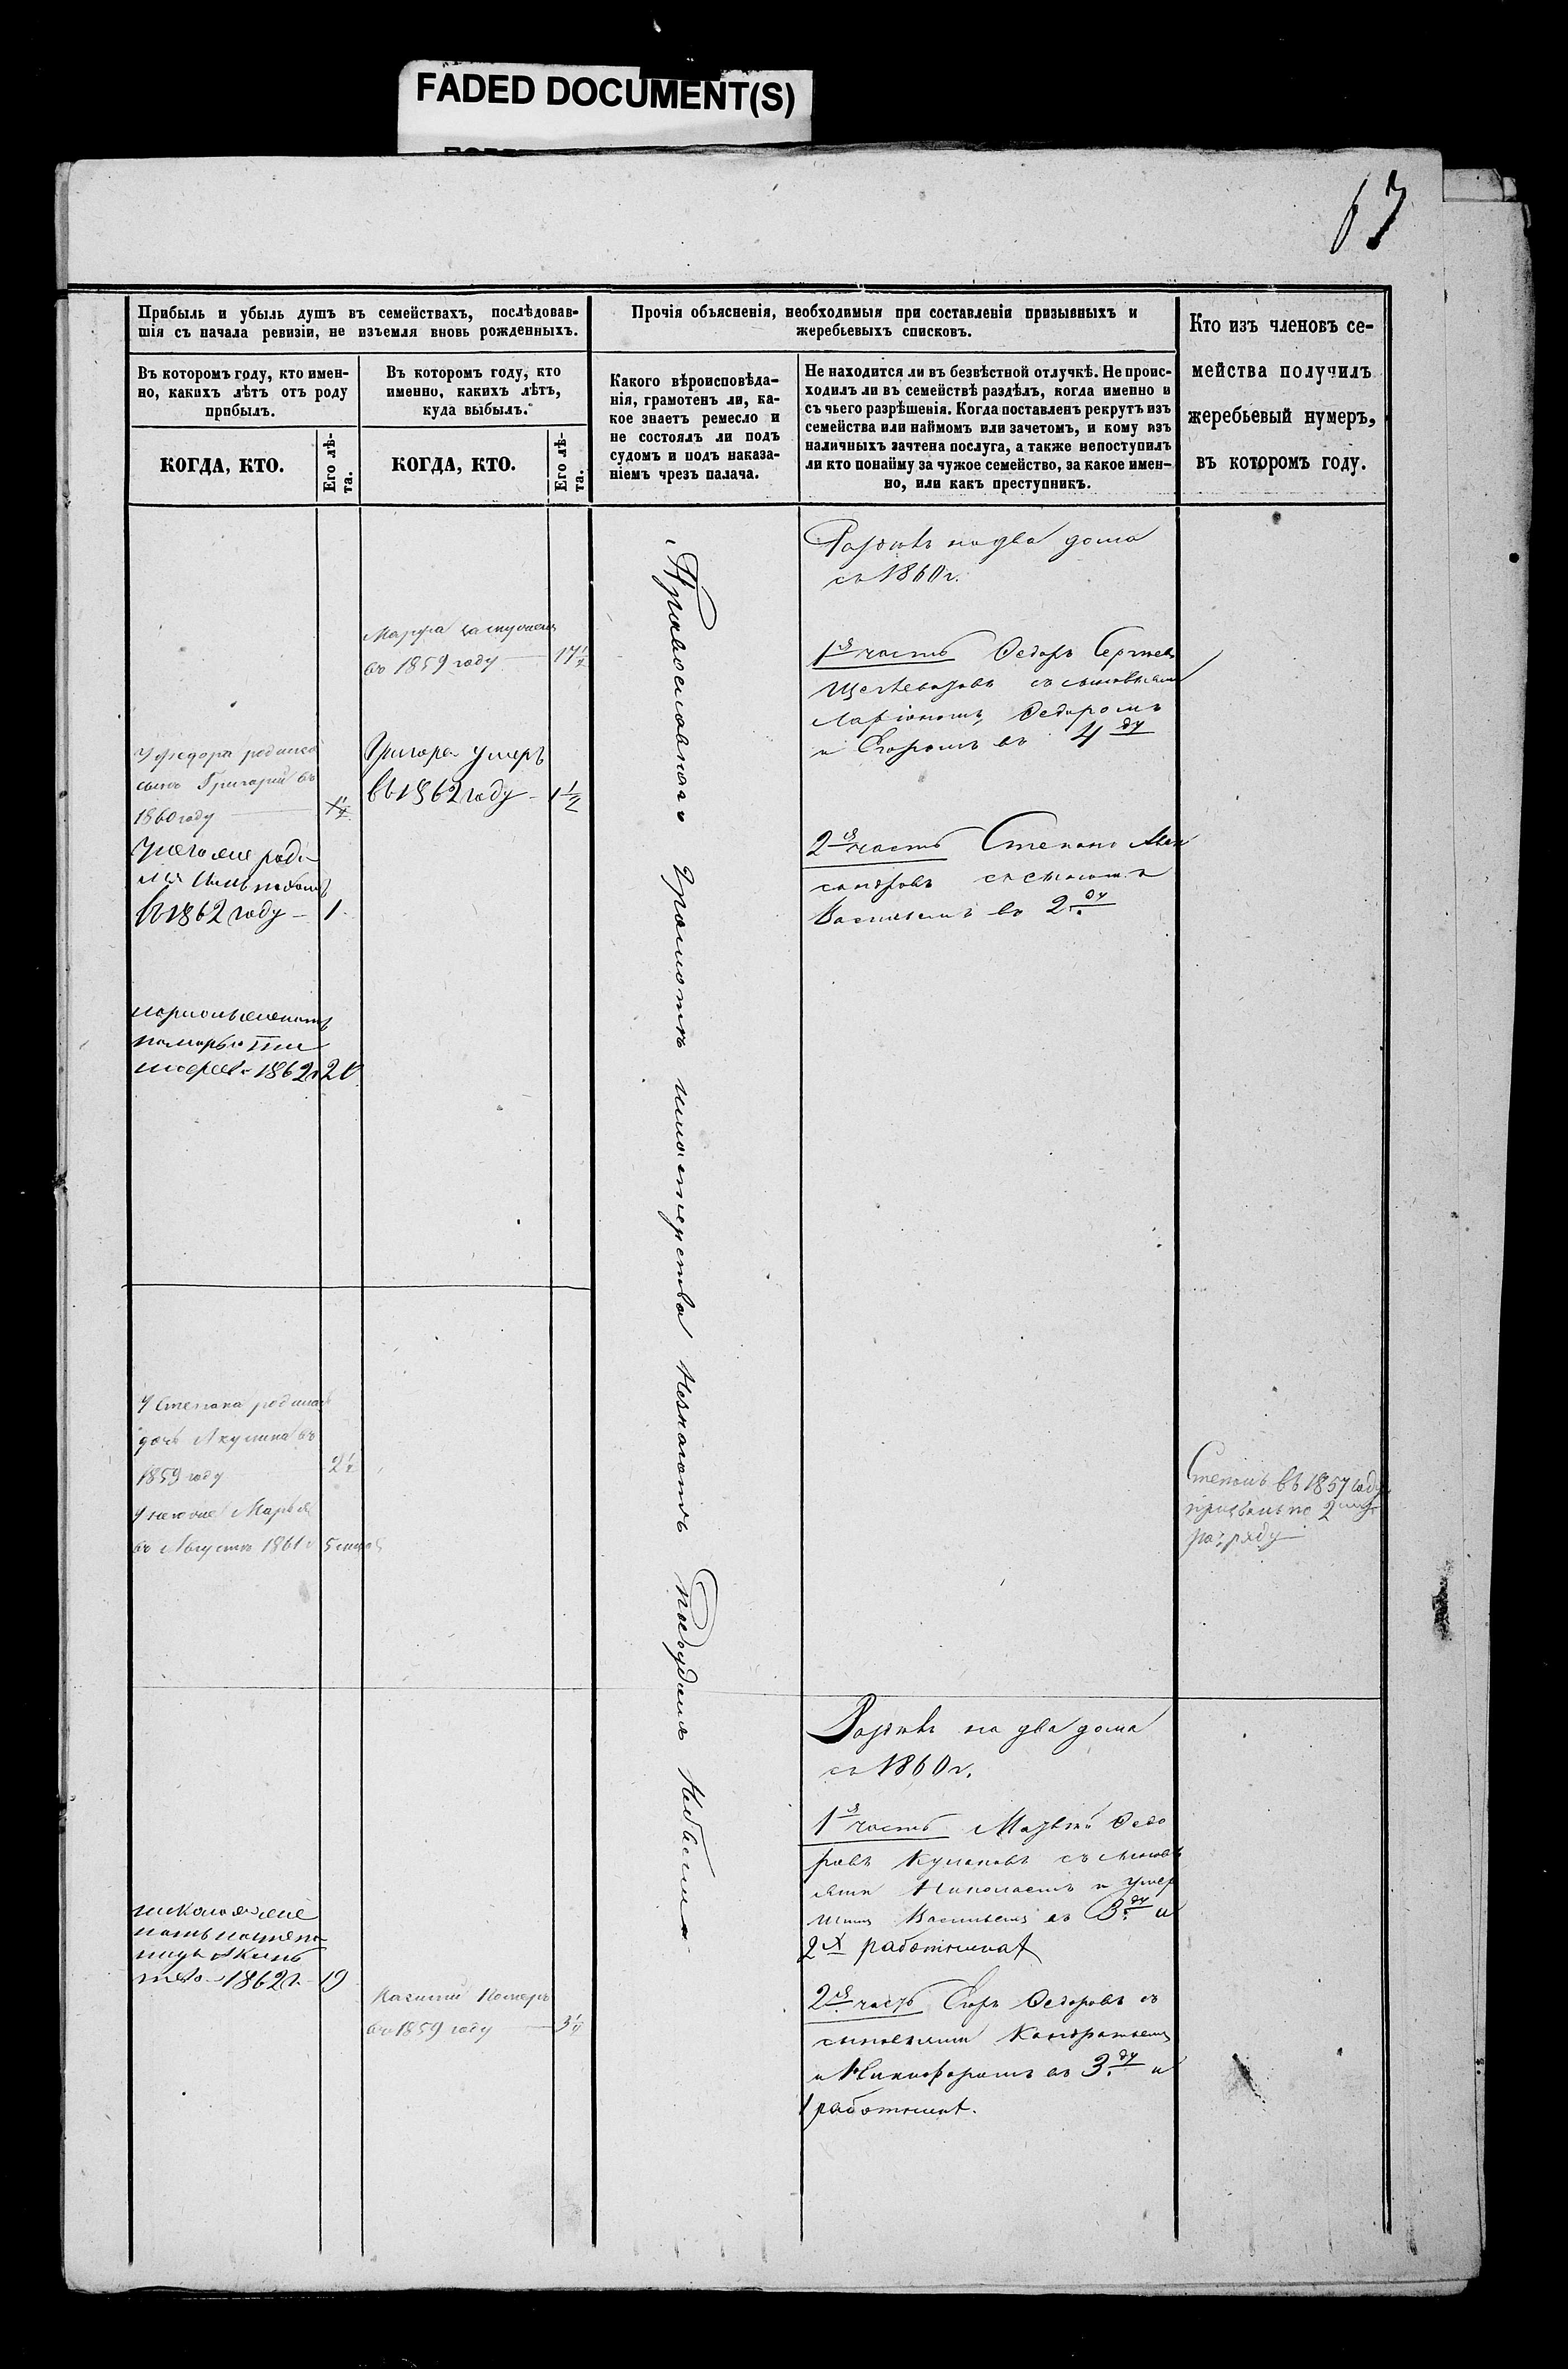 FADED DOCUMENT(S)
63
Прибыль и убыль душъ въ семействахъ, послѣдовав-
шія съ начала ревизіи, не изъемля вновь рожденныхъ.
Въ которомъ году, кто имен-
но, какихъ лѣтъ отъ роду
прибылъ.
КОГДА, КТО.
Его лѣ-
та.
Въ которомъ году, кто
именно, какихъ лѣтъ,
куда выбылъ.
КОГДА, КТО.
Его лѣ-
та.
Прочія объясненія, необходимыя при составленіи призывныхъ и
жеребьевыхъ списковъ.
Какого вѣроисповѣда-
нія, грамотенъ ли, ка-
кое знаетъ ремесло и
не состоялъ ли подъ
судомъ и подъ наказа-
ніемъ чрезъ палача.
Не находится ли въ безвѣстной отлучкѣ. Не проис-
ходилъ ли въ семействѣ раздѣлъ, когда именно и
съ чьего разрѣшенія. Когда поставленъ рекрутъ изъ
семейства или наймомъ или зачетомъ, и кому изъ
наличныхъ зачтена послуга, а также непоступилъ
ли кто понайму за чужое семейство, за какое имен-
но, или какъ преступникъ.
Кто изъ членовъ се-
мейства получилъ
жеребьевый нумеръ,
въ которомъ году.
У Федора родился
сынъ Григорій въ
1860 году
У него же роди
въ 1862 году - 1
1862 20
У Степана родилась
дочь Акулина въ
1859 году 2½
У него же Марья
въ Августѣ 1861
1862 г. 19
Марфа
въ 1859 году 17½
Григорій умеръ
въ 1862 году 1½
въ 1859 году
Православнаго грамотѣ мастерства незнаютъ Подсудомъ небыли
Раздѣлъ на два дома
съ 1860 г.
1я часть Федоръ Сергѣевъ
съ сыновьями
Ларіономъ, Федоромъ
и Егоромъ въ 4 ду
2я часть Степанъ Алек
сандровъ съ сыномъ
Васильемъ въ 2 ду
Раздѣлъ на два дома
съ 1860 г.
1я часть Матвѣй Федо
ровъ Кулаковъ съ сыновь
ями Николаемъ и умер
шимъ Васильемъ въ 3 ду и
2х работникахъ
2я часть Егоръ Федоровъ съ
сыновьями Кондратьемъ
и Никифоромъ въ 3 ду и
1 работникѣ.
Степанъ въ 1857 году
призванъ по 2му
разряду